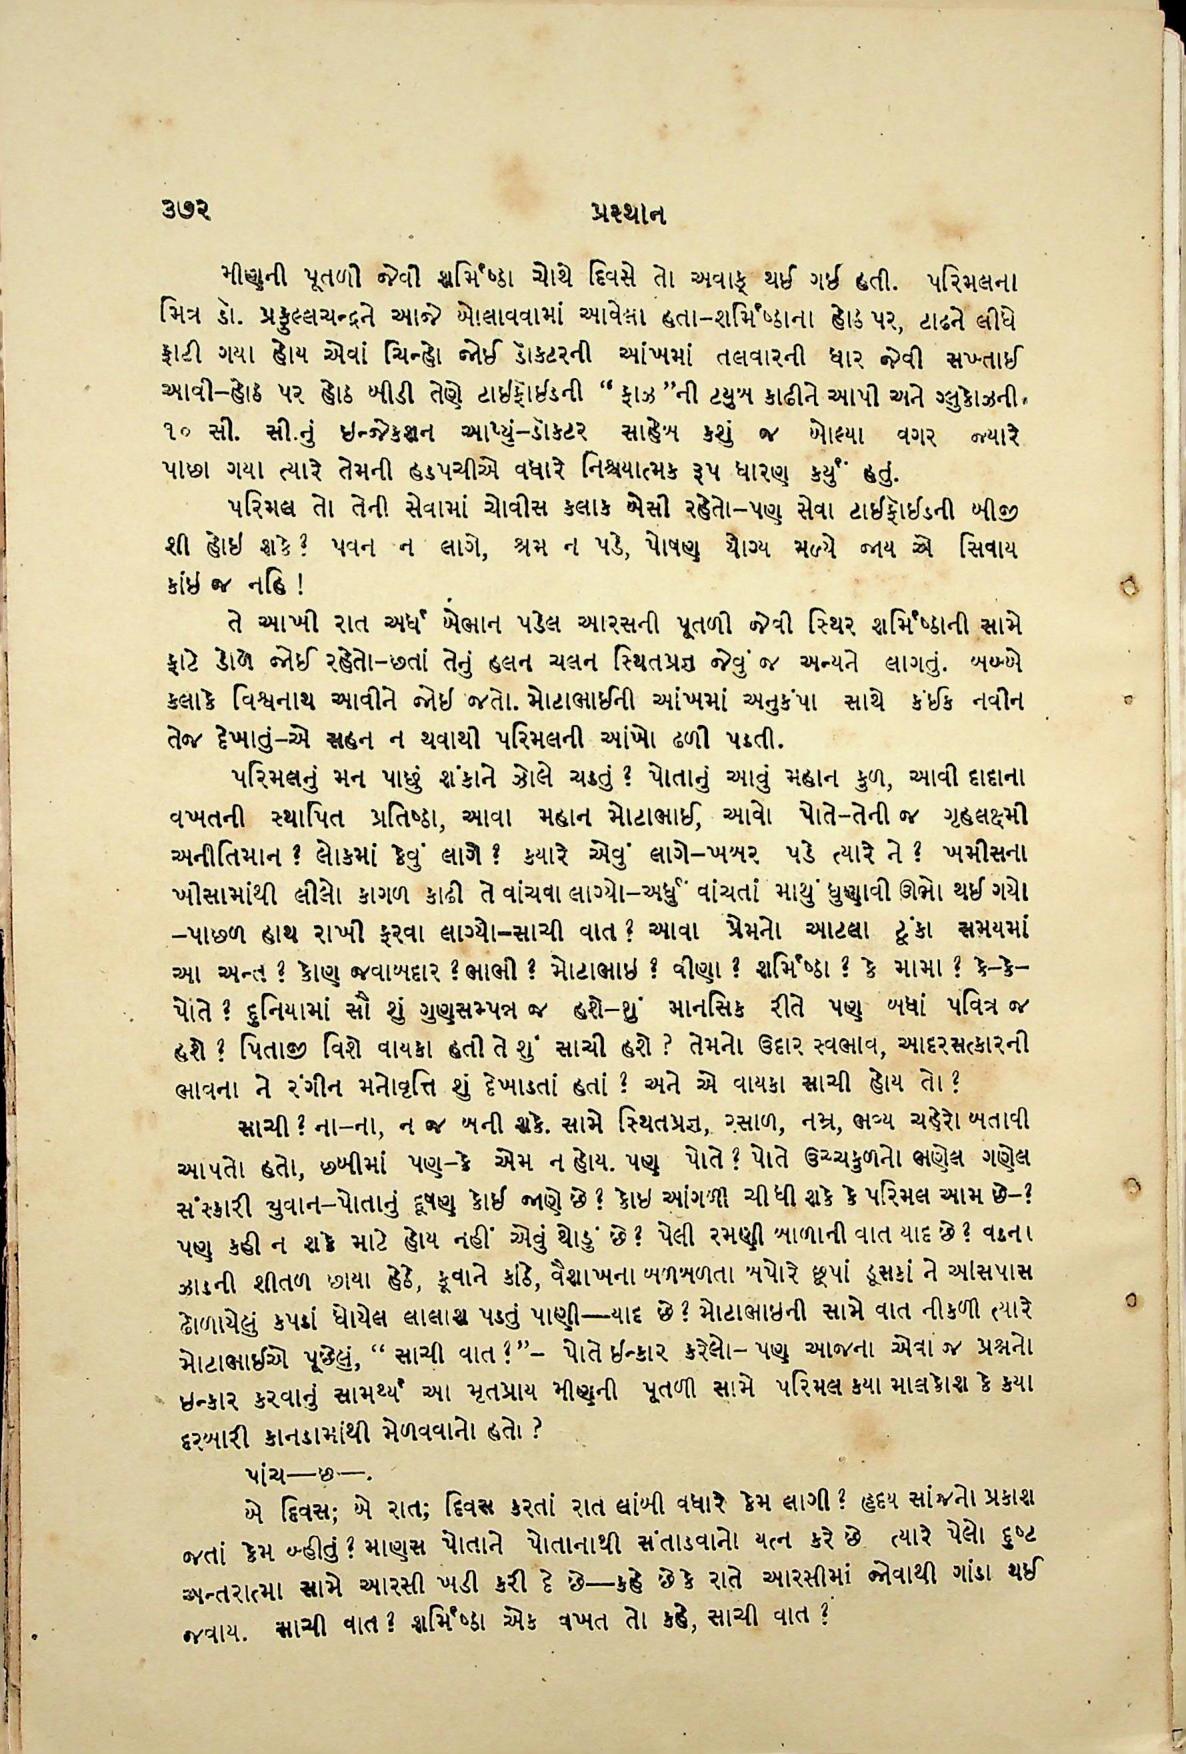 ૩૭૨
પ્રસ્થાન
મીણની પૂતળી જેવી શર્મિષ્ઠા ચોથે દિવસે તો અવાક્ થઈ ગઈ હતી. પરિમલના
મિત્ર ડૉ. પ્રફુલ્લચન્દ્રને આજે બોલાવવામાં આવેલા હતા–શર્મિષ્ઠાના હોઠ પર, ટાઢને લીધે
ફાટી ગયા હોય એવાં ચિન્હો જોઈ ડૉકટરની આંખમાં તલવારની ધાર જેવી સખ્તાઈ
આવી–હોઠ પર હોઠ બીડી તેણે ટાઈફૉઈડની “ફાઝ”ની ટયુબ કાઢીને આપી અને ગ્લુકોઝની
૧૦ સી. સી.નું ઇન્જેકશન આપ્યું–ડૉકટર સાહેબ કશું જ બોલ્યા વગર જ્યારે
પાછા ગયા ત્યારે તેમની હડપચીએ વધારે નિશ્ચયાત્મક રૂપ ધારણ કર્યું હતું.
પરિમલ તો તેની સેવામાં ચોવીસ કલાક બેસી રહેતો–પણ સેવા ટાઈફૉઈડની બીજી
શી હોઇ શકે? પવન ન લાગે, શ્રમ ન પડે, પોષણ યોગ્ય મળ્યે જાય એ સિવાય
કાંઇ જ નહિ!
તે આખી રાત અર્ધ બેભાન પડેલ આરસની પૂતળી જેવી સ્થિર શર્મિષ્ઠાની સામે
ફાટે ડોળે જોઈ રહેતો–છતાં તેનું હલન ચલન સ્થિતપ્રજ્ઞ જેવું જ અન્યને લાગતું. બબ્બે
કલાકે વિશ્વનાથ આવીને જોઇ જતો. મોટાભાઈની આંખમાં અનુકંપા સાથે કંઈક નવીન
તેજ દેખાતું–એ સહન ન થવાથી પરિમલની આંખો ઢળી પડતી.
પરિમલનું મન પાછું શંકાને ઝોલે ચડતું? પોતાનું આવું મહાન કુળ, આવી દાદાના
વખતની સ્થાપિત પ્રતિષ્ઠા, આવા મહાન મોટાભાઈ, આવો પોતે–તેની જ ગૃહલક્ષ્મી
અનીતિમાન? લોકમાં કેવું લાગે? કયારે એવું લાગે–ખબર પડે ત્યારે ને? ખમીસના
ખીસામાંથી લીલો કાગળ કાઢી તે વાંચવા લાગ્યો–અર્ધું વાંચતાં માથું ધુણાવી ઊભો થઈ ગયો
–પાછળ હાથ રાખી ફરવા લાગ્યો–સાચી વાત? આવા પ્રેમનો આટલા ટૂંકા સમયમાં
આ અન્ત? કોણ જવાબદાર? ભાભી? મોટાભાઇ? વીણા? શર્મિષ્ઠા? કે મામા? કે–કે–
પોતે? દુનિયામાં સૌ શું ગુણસમ્પન્ન જ હશે–શું માનસિક રીતે પણ બધાં પવિત્ર જ
હશે? પિતાજી વિશે વાયકા હતી તે શું સાચી હશે? તેમનો ઉદાર સ્વભાવ, આદરસત્કારની
ભાવના ને રંગીન મનોવૃત્તિ શું દેખાડતાં હતાં? અને એ વાયકા સાચી હોય તો?
સાચી? ના–ના, ન જ બની શકે. સામે સ્થિતપ્રજ્ઞ, રસાળ, નમ્ર, ભવ્ય ચહેરો બતાવી
આપતો હતો, છબીમાં પણ–કે એમ ન હોય. પણ પોતે? પોતે ઉચ્ચકુળનો ભણેલ ગણેલ
સંસ્કારી યુવાન–પોતાનું દૂષણ કોઈ જાણે છે? કોઇ આંગળી ચીધી શકે કે પરિમલ આમ છે–?
પણ કહી ન શકે માટે હોય નહીં એવું થોડું છે? પેલી રમણી બાળાની વાત યાદ છે? વડના
ઝાડની શીતળ છાયા હેઠે, કૂવાને કાંઠે, વૈશાખના બળબળતા બપોરે છૂપાં ડૂસકાં ને આસપાસ
ઢોળાયેલું કપડાં ધોયેલ લાલાશ પડતું પાણી—યાદ છે? મોટાભાઇની સામે વાત નીકળી ત્યારે
મોટાભાઈએ પૂછેલું, “ સાચી વાત?”– પોતે ઈન્કાર કરેલો– પણ આજના એવા જ પ્રશ્નનો
ઇન્કાર કરવાનું સામર્થ્ય આ મૃતપ્રાય મીણની પૂતળી સામે પરિમલ કયા માલકોશ કે કયા
દરબારી કાનડામાંથી મેળવવાનો હતો?
પાંચ—છ—.
બે દિવસ; બે રાત; દિવસ કરતાં રાત લાંબી વધારે કેમ લાગી? હૃદય સાંજનો પ્રકાશ
જતાં કેમ બ્હીતું? માણસ પોતાને પોતાનાથી સંતાડવાનો યત્ન કરે છે ત્યારે પેલો દુષ્ટ
અન્તરાત્મા સામે આરસી ખડી કરી દે છે—કહે છે કે રાતે આરસીમાં જોવાથી ગાંડા થઈ
જવાય. સાચી વાત? શર્મિષ્ઠા એક વખત તો કહે, સાચી વાત?